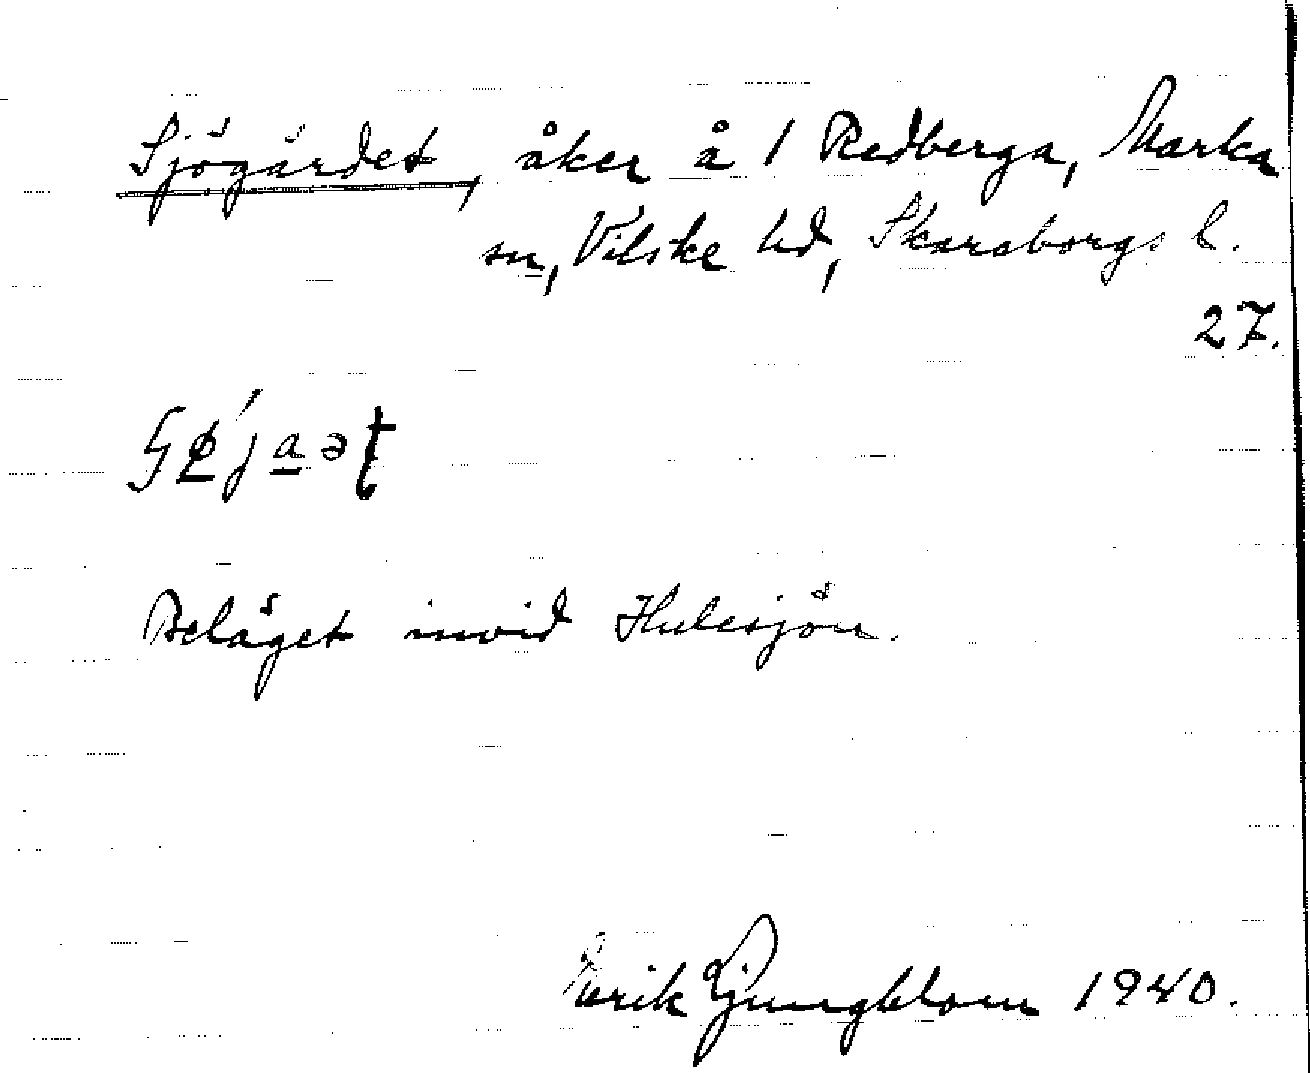 Sjögärdet, åker å 1 Redberga, Marka
sn, Vilske hd, Skaraborgs l.
27.
Beläget invid Hulesjön.
Erik Ljungblom 1940.